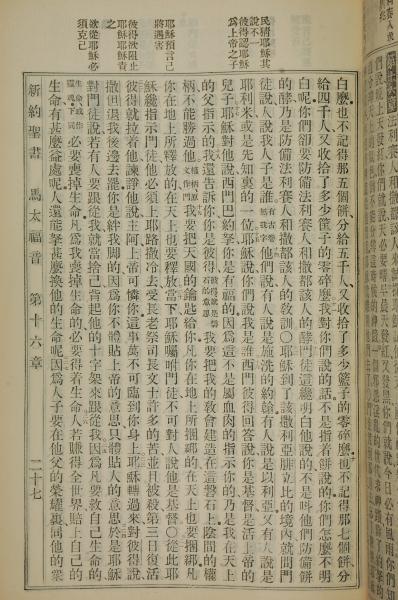 民猜耶穌其
說不一
彼得認耶穌
為上帝之子
耶穌預言己
將遇害
彼得欲阻止
耶穌耶穌責
欲從耶穌必
須克己
白麼也不記得那五個餅分給五千人又收拾了多少籃子的零碎麼也不記得那七個餅分
給四千人又收拾了多少筐子的零碎麼我對你們說的話不是指着餅說的你們怎麼不明
白呢你們卻要防備法利賽人和撒都該人的酵門徒這纔明白他說的不是叫他們防備餅
的酵乃是防備法利賽人和撒都該人的教訓○耶穌到了該撒利亞腓立比的境內就問門
徒說人說我人子是誰有古卷無我字他們說有人說是施洗的約翰有人說是以利亞又有人說是
耶利米或是先知裏的一位耶穌說你們說我是誰西門彼得回答說你是基督是活上帝的
兒子耶穌對他說西門巴約拏你是有福的因為這不是屬血肉的指示你的乃是我在天上
的父指示的我還告訴你你是彼得彼得就是磐石的意思我要把我的教會建造在這磐石上陰間的權
柄不能勝過他權柄原文作門我要把天國的鑰匙給你凡你在地上所捆綁的在天上也要捆綁凡
你在地上所釋放的在天上也要釋放當下耶穌囑咐門徒不可對人說他是基督○從此耶
穌纔指示門徒他必須上耶路撒冷去受長老祭司長文士許多的苦並且被殺第三日復活
彼得就拉着他諫諍他說主阿上帝可憐你這事萬不可臨到你身上耶穌轉過來對彼得說
撒但退我後邊去罷你是絆我腳的因為你不體貼上帝的意思只體貼人的意思於是耶穌
對門徒說若有人要跟從我就當捨己背起他的十字架來跟從我因為凡要救自己生命的
生命或作靈魂下同必要喪掉生命凡為我喪掉生命的必要得着生命人若賺得全世界賠上自己的
生命有甚麼益處呢人還能拏甚麼換他的生命呢因為人子要在他父的榮耀裏同他的衆
新約聖書 馬太福音 第十六章 二十七